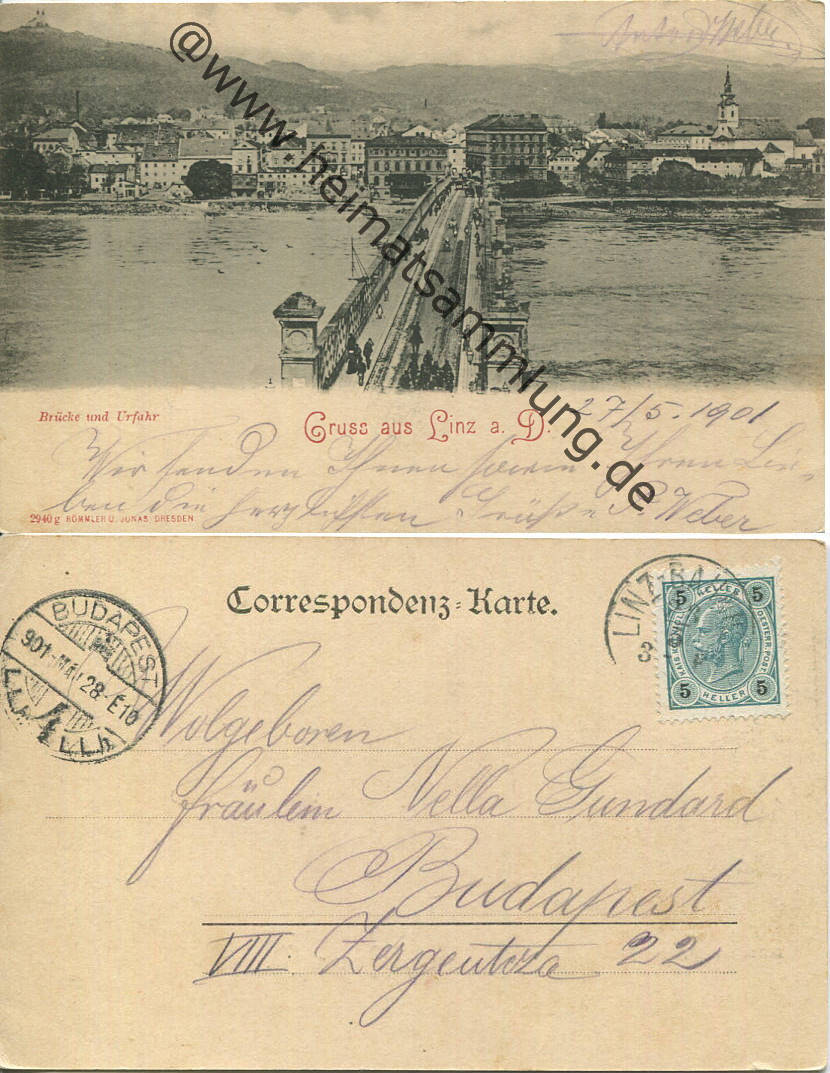 @www.heimatsammlung.de
Weber
Brücke und Urfahr
Gruss aus Linz a. D.
27/5. 1901
Wir senden Ihnen sowie Ihren Lie-
ben die herzlichsten Grüße P. Weber
2940 g RÖMMLER U. JONAS DRESDEN
Correspondenz-Karte.
BUDAPEST
901 MÁJ 28 E10
LINZ-BA
5 HELLER 5
KAIS. KÖNIGL. OESTERR. POST
5 HELLER 5
Wolgeboren
Fräulein Nella Gundard
Budapest
VIII. Zergeutcza 22